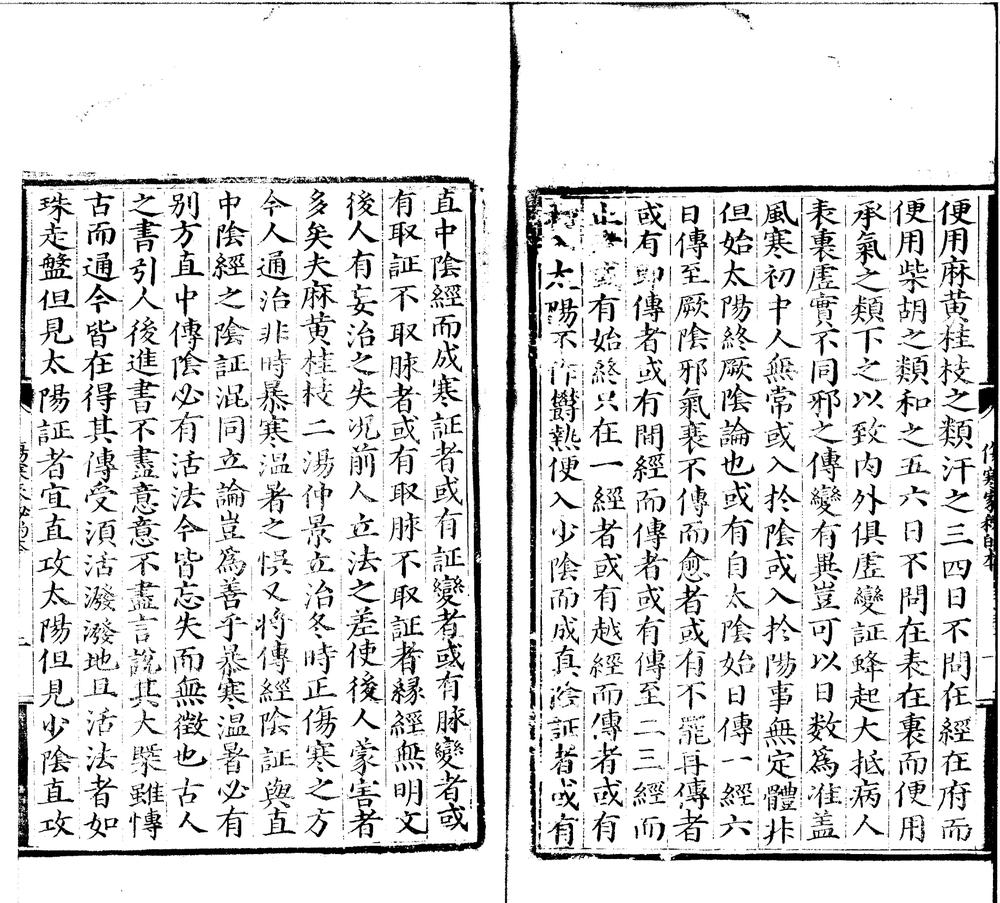 便用麻黃桂枝之類汗之三四日不問在經在府而
便用柴胡之類和之五六日不問在表在裏而便用
承氣之類下之以致內外俱虛變証蜂起大抵病人
表裏虛實不同邪之傳變有異豈可以日数爲准蓋
風寒初中人無常或入於陰或入於陽事無定體非
但始太陽終厥陰論也或有自太陰始日傳一經六
日傳至厥陰邪氣衰不傳而愈者或有不罷再傳者
或有即傳者或有間經而傳者或有傳至二三經而
止者或有始終只在一經者或有越經而傳者或有
初入太陽不作欝熱便入少陰而成真陰証者或有
直中陰經而成寒証者或有証變者或有脉變者或
有取証不取脉者或有取脉不取証者緣經無明文
後人有妄治之失况前人立法之差使後人蒙害者
多矣夫麻黃桂枝二湯仲景立治冬時正傷寒之方
今人通治非時暴寒温暑之悞又將傳經陰証與直
中陰經之陰証混同立論豈爲善乎暴寒温暑必有
别方直中傳陰必有活法今皆忘失而無徵也古人
之書引人後進書不盡意意不盡言說其大槩雖慱
古而通今皆在得其傳受湏活潑潑地且活法者如
珠走盤但見太陽証者宜直攻太陽但見少陰直攻